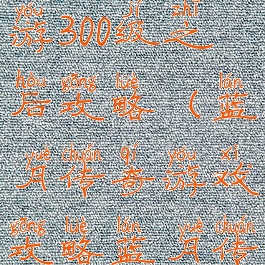 yóu jí zhī
游300级之
hòu gōng lüè lán
后攻略(蓝
yuè chuán qí yóu xì
月传奇游戏
gōng lüè lán yuè chuán
攻略蓝月传